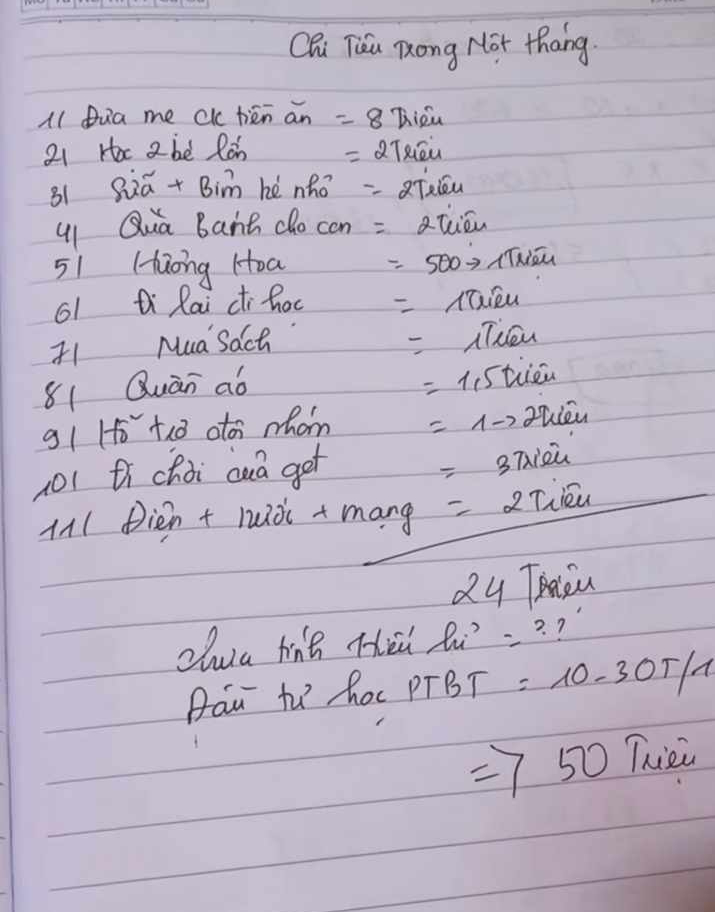 Chi Tiêu Trong Một tháng.
1/ Đưa mẹ ck tiền ăn = 8 Triệu
2/ Học 2 bé lớn = 2 Triệu
3/ Sữa + Bỉm bé nhỏ = 2 Triệu
4/ Quà Bánh cho con = 2 triệu
5/ Hương Hoa = 500 → 1 Triệu
6/ Đi lại đi học = 1 Triệu
7/ Mua Sách = 1 Triệu
8/ Quần áo = 1,5 triệu
9/ Hỗ trợ nhóm = 1 → 2 triệu
10/ Đi chơi = 3 Triệu
11/ Điện + nước + mạng = 2 Triệu
24 Triệu
chưa tính Hiếu hỉ = ??
Đầu tư học PTBT = 10 - 30T/1
=> 50 Triệu